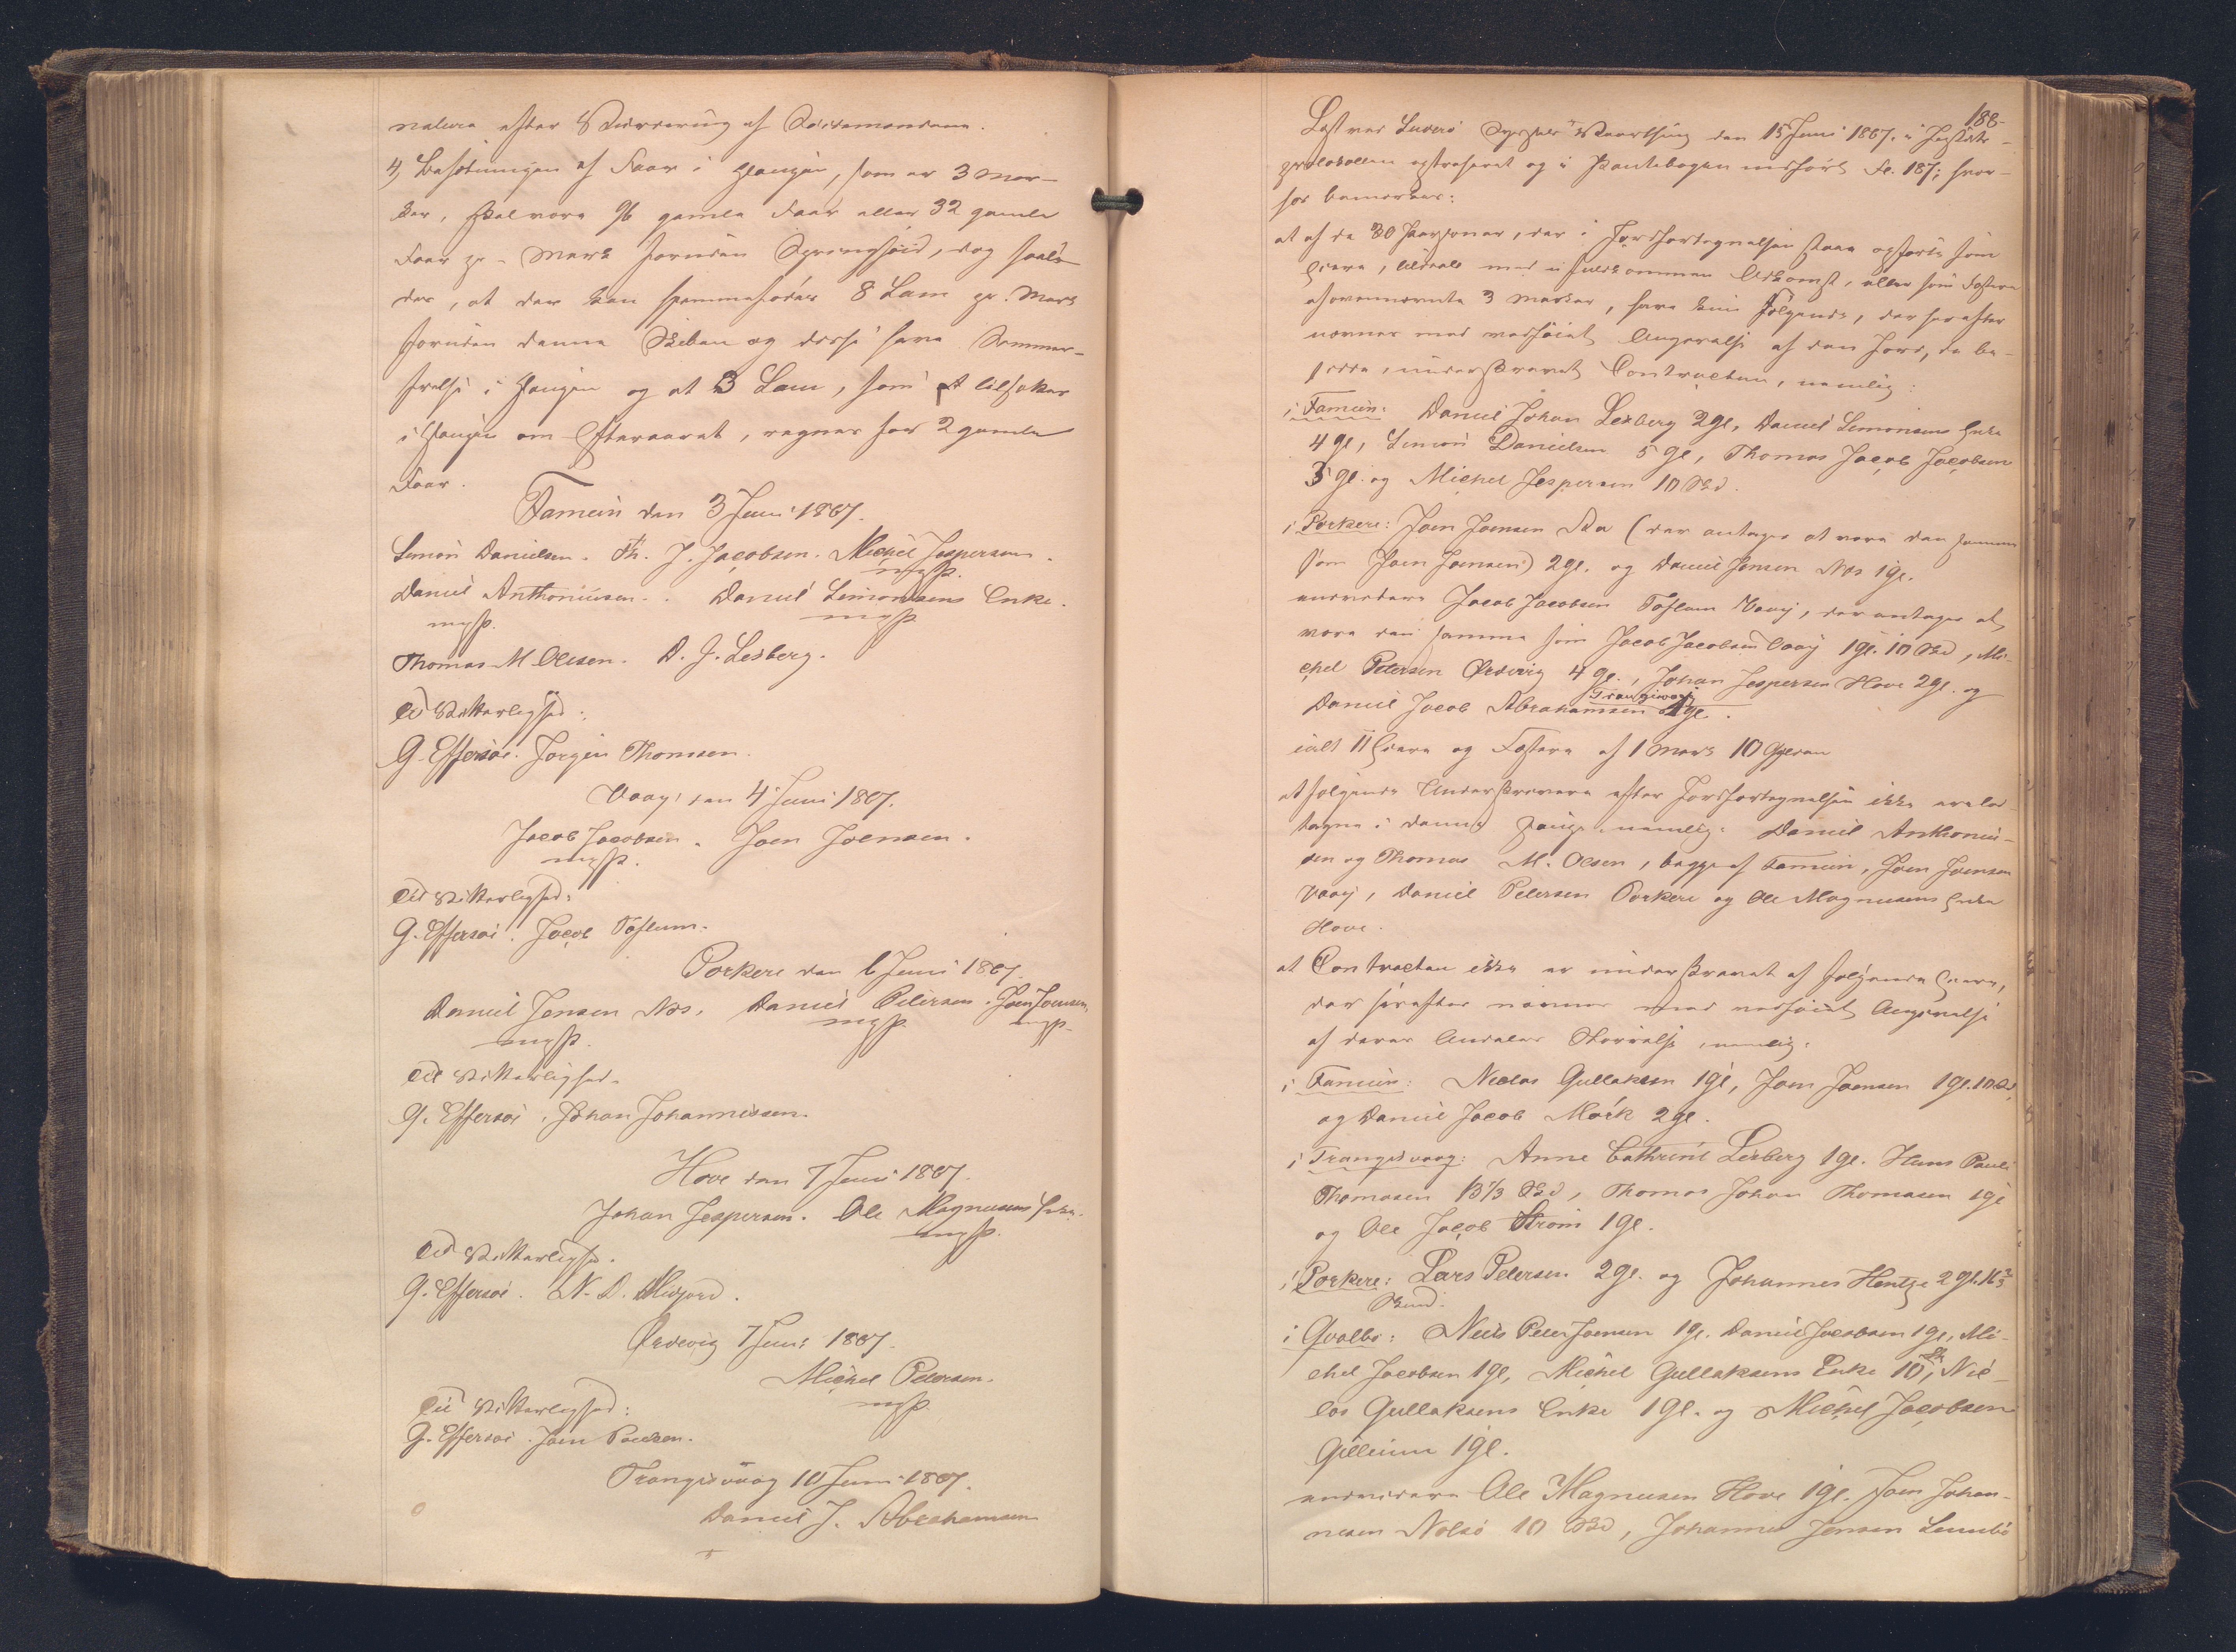 natura efter Vurdering af Sexismændene.
4, Besætningen af Faar i Haugen, som er 3 Mar-
ker, skal være 96 gamle Faar eller 32 gamle
Faar pr. Mark foruden Springhöid, dog saale-
des, at der kan fremmefodres 8 Lam pr. Mark
foruden denne Skiben og disse have Sommer-
frelse i Haugen og at 3 Lam, som tilsættes
i Haugen om Efteraaret, regnes for 2 gamle
Faar.
Famein den 3 Juni 1867.
Simon Danielsen. Th. J. Jacobsen. Michel Jespersen.
mfP.
Daniel Anthoniusen. Daniel Simonsens Enke.
mfP. mfP.
Thomas M Olesen. D. J. Leisberg.
Til Vitterlighed:
G. Effersöe. Jørgen Thomsen.
Vaag, den 4 Juni 1867.
Jacob Jacobsen. Joen Joensen.
mfP.
Til Vitterlighed:
G. Effersöe. Jacob Toftum.
Porkere den 6 Juni 1867.
Daniel Jensen Næs, Daniel Petersen. Joen Joensen.
mfP. mfP. mfP.
Til Vitterlighed.
G. Effersöe. Johan Johannessen.
Hove den 7 Juni 1867.
Johan Jespersen. Ole Magnusens Enke.
mfP.
Til Vitterlighed.
G. Effersöe. N. D. Midjord.
Ørdevig 7 Juni 1867.
Michel Petersen.
mfP.
Til Vitterlighed:
G. Effersöe. Joen Poulsen.
Trangisvaag 10 Juni 1867.
Daniel J. Abrahamsen
188.
Læst ved Suderö Syssels Vaarthing den 15 Juni 1867, i Justits-
protokollen extraheret og i Pantebogen indfört Fol. 187; hvor-
hos bemærkes:
at af de 30 Personer, der i Jordfortegnelsen staae opförte som
Eiere, tildeels med ufuldkommen Adkomst, eller som Fæstere
af ovennævnte 3 Marker, have kun fölgende, der herefter
nævnes med vedföiet Angivelse af den Jord, de be-
sidde, underskrevet Contracten, nemlig:
i Famein: Daniel Johan Leisberg 2 Gl, Daniel Simonsens Enke
4 Gl, Simon Danielsen 5 Gl, Thomas Jacob Jacobsen
3 Gl. og Michel Jespersen 10 Skd.
i Porkere: Joen Joensen (der antages at være den samme
som Joen Joensen) 2 Gl. og Daniel Jensen Næs 1 Gl.
endvidere Jacob Jacobsen Toftum Vaag, der antages at
være den samme som Jacob Jacobsen Vaag 1 Gl. 10 Skd, Mi-
chel Petersen Ørdevig 4 Gl., Johan Jespersen Hove 2 Gl. og
Daniel Jacob Abrahamsen Trangisvaag 1 Gl.
ialt 11 Eiere og Fæstere af 1 Mark 10 Gylden
at fölgende Underskrevere efter Jordfortegnelsen ikke ere lod-
tagne i denne Hauge, nemlig: Daniel Anthoniu-
sen og Thomas M. Olsen, begge af Famein, Joen Joensen
Vaag, Daniel Petersen Porkere og Ole Magnusens Enke
Hove.
at Contracten ikke er underskrevet af fölgende Eiere,
der herefter nævnes med vedföiet Angivelse
af deres Andeles Störrelse, nemlig:
i Famein: Niclas Gullaksen 1 Gl, Joen Joensen 1 Gl. 10 Skd,
og Daniel Jacob Mörk 2 Gl.
i Trangisvaag: Anne Cathrine Leisberg 1 Gl. Hans Pauli
Thomasen 13 1/3 Skd, Thomas Johan Thomasen 1 Gl
og Ole Jacob Ström 1 Gl.
i Porkere: Lars Petersen 2 Gl. og Johannes Hentze 2 Gl. 16 2/3
Skind.
i Qvalbö: Niels Peter Joensen 1 Gl. Daniel Jacobsen 1 Gl, Mi-
chel Jacobsen 1 Gl, Michel Gullaksens Enke 10 Sk, Nic-
las Gullaksens Enke 1 Gl. og Michel Jacobsen
Gilleium 1 Gl.
endvidere Ole Magnusen Hove 1 Gl. Joen Johan-
nesen Nolsö 10 Skd, Johannes Jensen Sumbö